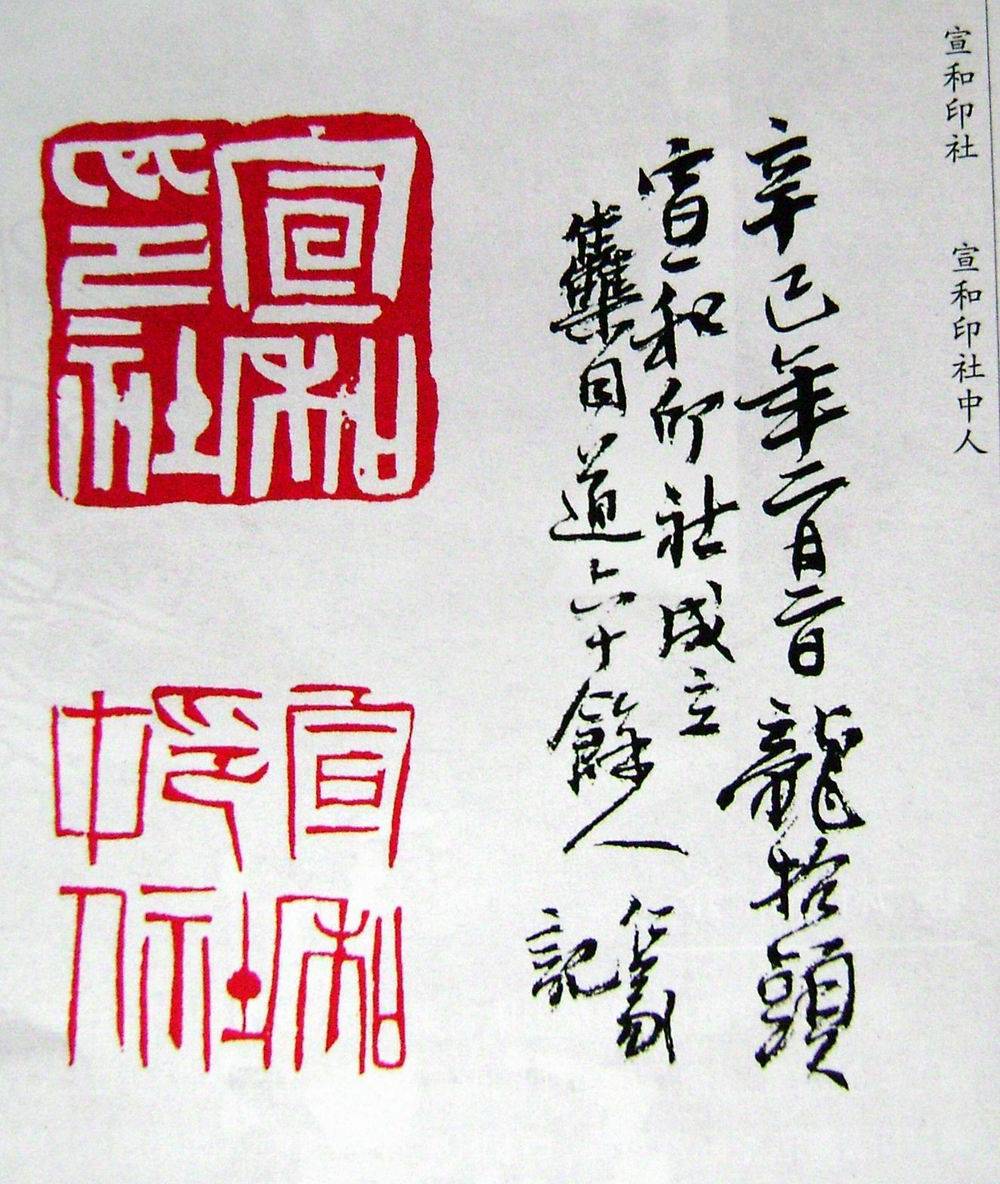 宣和印社
宣和印社中人
辛巳年二月二日龍抬頭
宣和印社成立
雧同道六十餘人
記
宣和印社
宣和印社中人